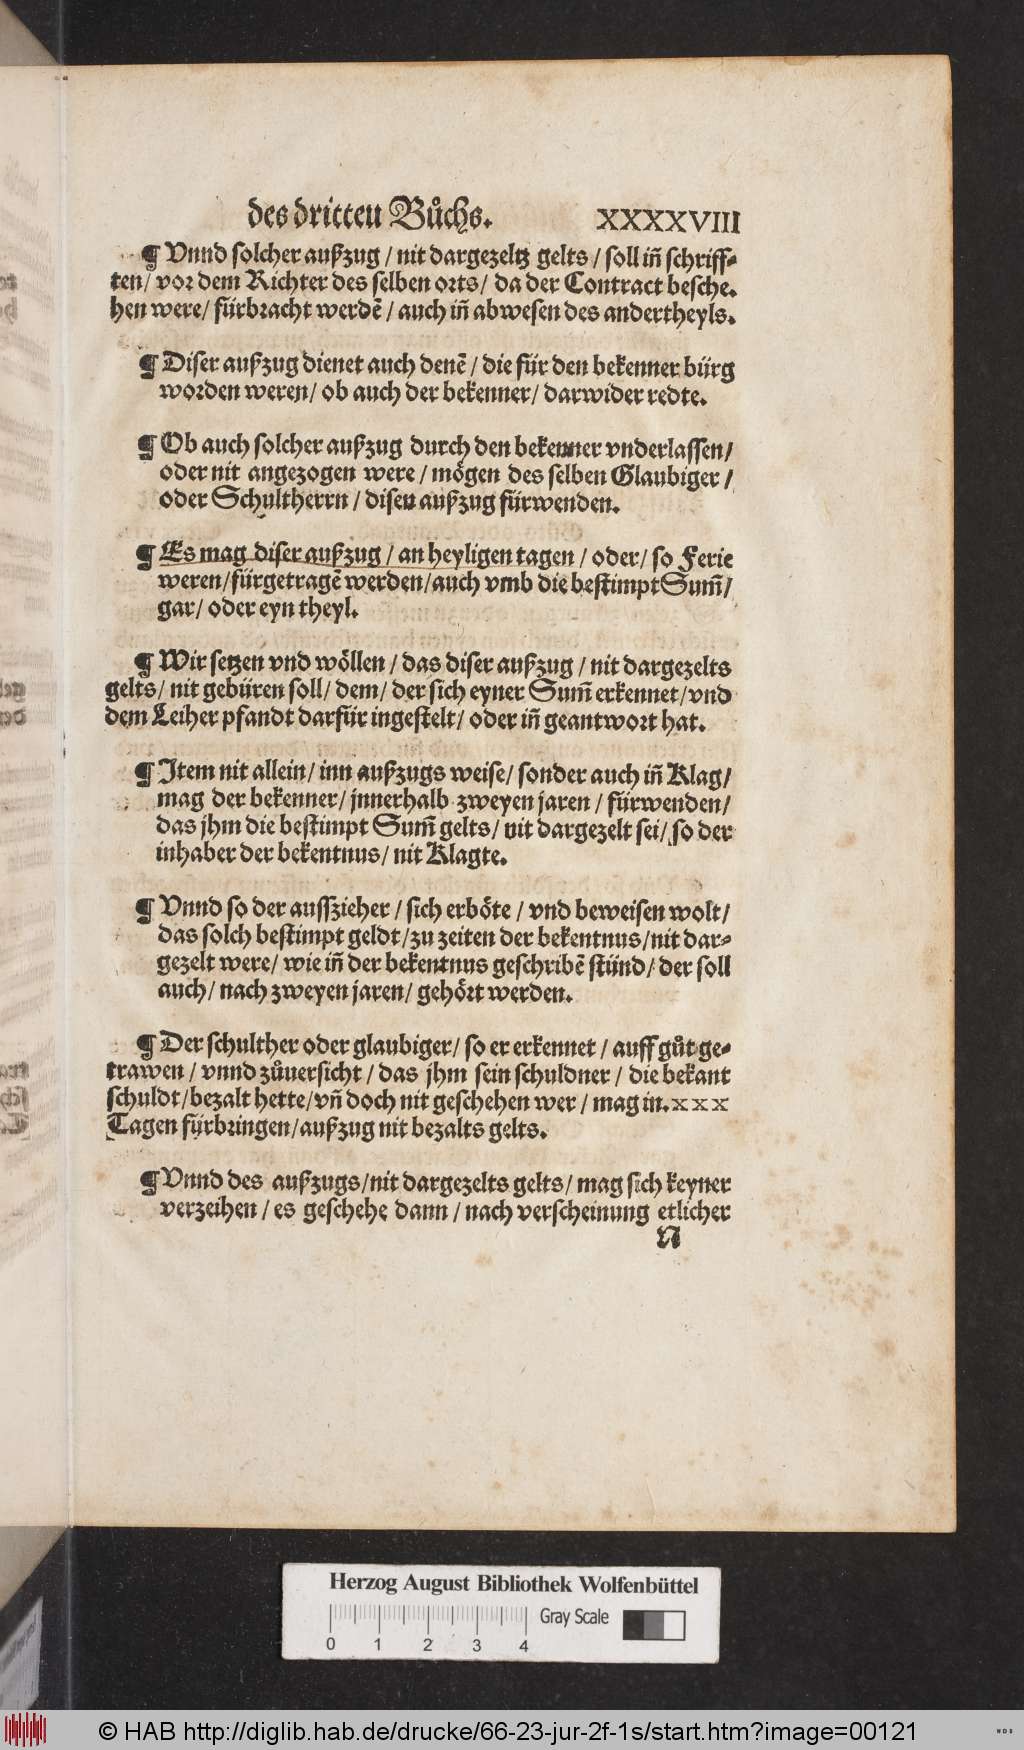 des dritten Bůchs. XXXXVIII
¶ Vnnd solcher außzug / nit dargezeltz gelts / soll iñ schriff⸗
ten / vor dem Richter des selben orts / da der Contract besche⸗
hen were / fürbracht werdẽ / auch iñ abwesen des andertheyls.
¶ Diser außzug dienet auch denẽ / die für den bekenner bürg
worden weren / ob auch der bekenner / darwider redte.
¶ Ob auch solcher außzug durch den bekenner vnderlassen /
oder nit angezogen were / mögen des selben Glaubiger /
oder Schultherrn / disen außzug fürwenden.
¶ Es mag diser außzug / an heyligen tagen / oder / so Ferie
weren / fürgetragẽ werden / auch vmb die bestimpt Sum̃ /
gar / oder eyn theyl.
¶ Wir setzen vnd wöllen / das diser außzug / nit dargezelts
gelts / nit gebüren soll / dem / der sich eyner Sum̃ erkennet / vnd
dem Leiher pfandt darfür ingestelt / oder iñ geantwort hat.
¶ Item nit allein / inn außzugs weise / sonder auch iñ Klag /
mag der bekenner / jnnerhalb zweyen jaren / fürwenden /
das jhm die bestimpt Sum̃ gelts / nit dargezelt sei / so der
inhaber der bekentnus / nit Klagte.
¶ Vnnd so der ausszieher / sich erböte / vnd beweisen wolt /
das solch bestimpt geldt / zu zeiten der bekentnus / nit dar⸗
gezelt were / wie iñ der bekentnus geschribẽ stünd / der soll
auch / nach zweyen jaren / gehört werden.
¶ Der schulther oder glaubiger / so er erkennet / auff gůt ge⸗
trawen / vnnd zůuersicht / das jhm sein schuldner / die bekant
schuldt / bezalt hette / vñ doch nit geschehen wer / mag in. xxx
Tagen fürbringen / außzug nit bezalts gelts.
¶ Vnnd des außzugs / nit dargezelts gelts / mag sich keyner
verzeihen / es geschehe dann / nach verscheinung etlicher
N
Herzog August Bibliothek Wolfenbüttel
Gray Scale
0 1 2 3 4
© HAB http://diglib.hab.de/drucke/66-23-jur-2f-1s/start.htm?image=00121